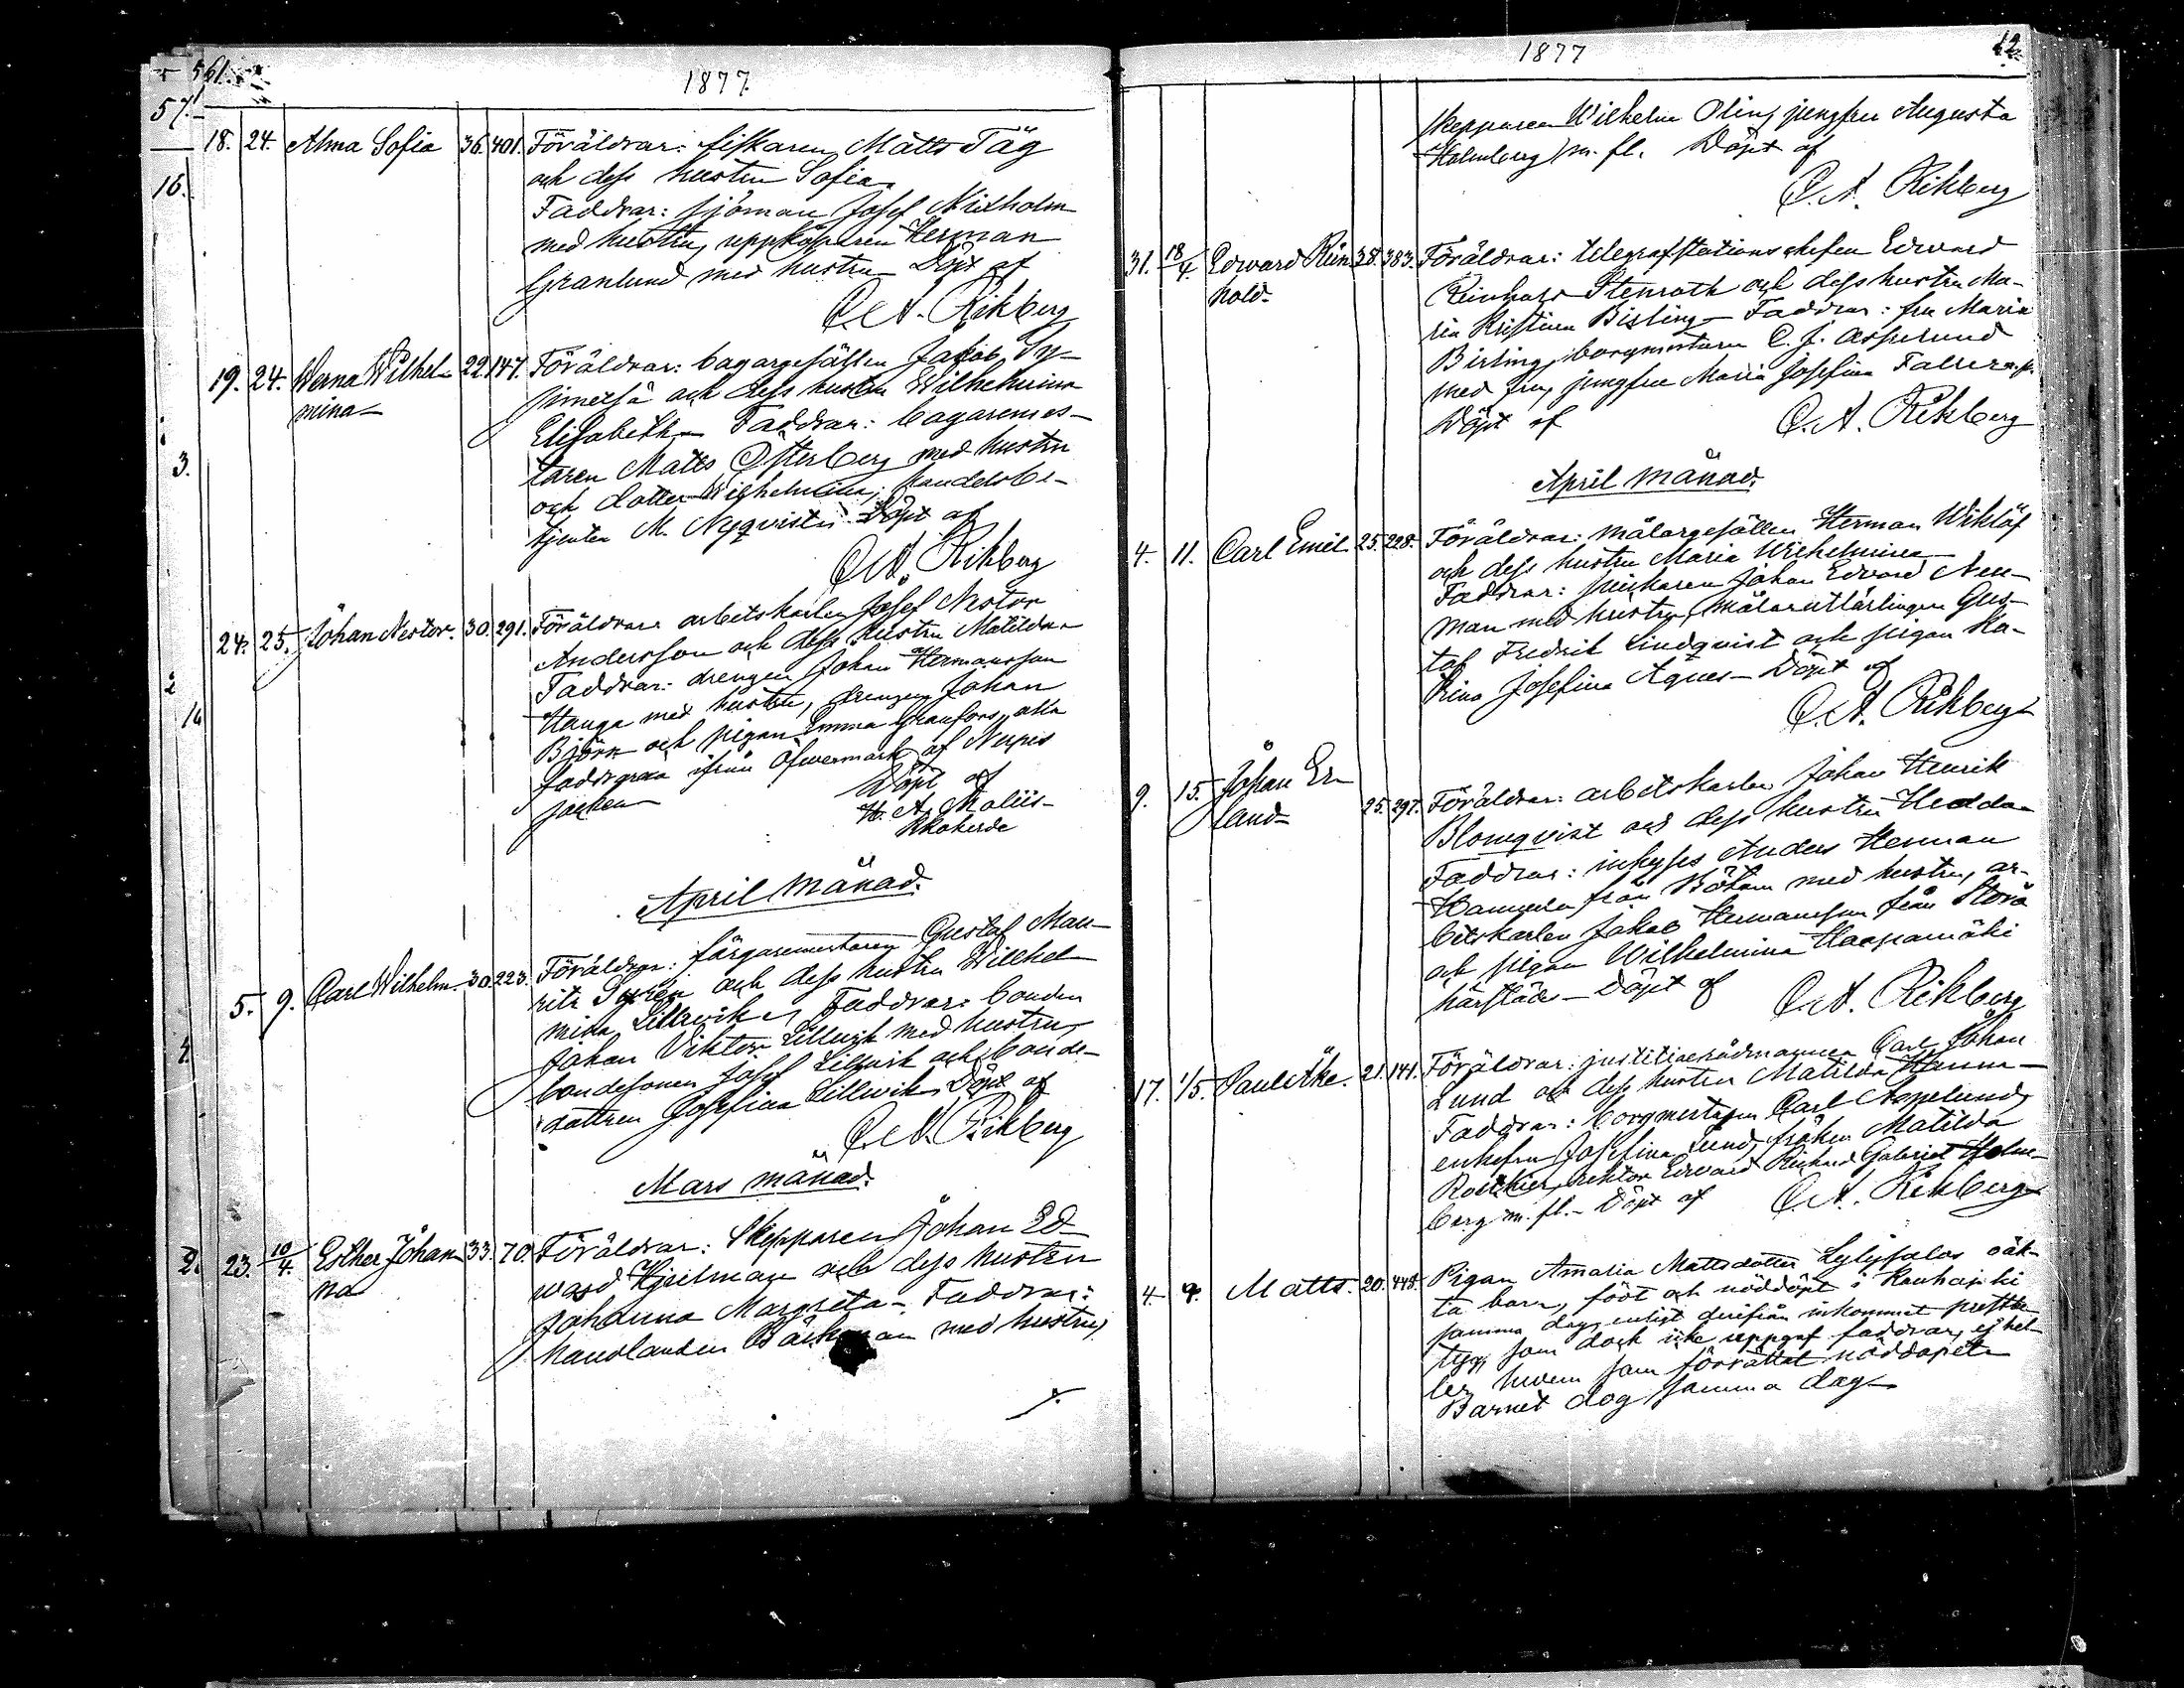 561.
57.
1877.
18. 24. Alma Sofia 36. 401. Föräldrar: fiskaren Matts Täg
och dess hustru Sofia
16.
Faddrar: sjöman Josef Nixholm
med hustru, uppköparen Herman
Granlund med hustru Döpt af
C. A. Rikberg
19. 24. Werna Wilhel- 22. 147. Föräldrar: bagargesällen Jakob
mina och dess hustru Wilhelmina
Elisabeth Faddrar: bagaremäs-
3.
taren Matts Österberg med hustru
och dotter Wilhelmina, handelsbe-
tjenten M. Nyqvist Döpt af
C. A. Rikberg
24. 25. Johan Nestor. 30. 291. Föräldrar arbetskarlen Josef Nestor
Andersson och dess hustru Matilda
2
Faddrar: drengen Johan Hermansson
16
Hauga med hustru, drengen Johan
Björk och pigan Emma Granfors, alla
faddrarna ifrån Öfvermark af Nerpes
socken Döpt af
H. A. Maliis-
April månad.
5. 9. Carl Wilhelm. 30. 223. Föräldrar: färgaremästaren Gustaf Mau-
ritz och dess hustru Wilhel-
mina Lillwik Faddrar: bonden
4.
Johan Viktor Lillwik med hustru,
bondesonen Josef Lillwik och bonde-
dottren Josefina Lillwik Döpt af
C. A. Rikberg
Mars månad.
2. 23. 10/4. Esther Johan- 33. 70. Föräldrar: Skepparen Johan Ed-
na ward Hjelman och dess hustru
Johanna Margreta - Faddrar:
handlanden Bäckman med hustru,
1877 12.
skepparen Wilhelm Olin, jungfru Augusta
Holmberg m. fl. Döpt af
C. A. Rikberg
31. 18/4. Edward Rein- 38. 383. Föräldrar: telegrafstationschefen Edward
hold- Reinhold Stenroth och dess hustru Ma-
ria Kristina Bisling - Faddrar: fru Maria
Birling, borgmästaren C. J. Asplund
med fru, jungfru Maria Josefina
Döpt af C. A. Rikberg
April månad.
4. 11. Carl Emil 25. 228. Föräldrar: målargesällen Herman Wiklöf
och dess hustru Maria Wilhelmina
Faddrar: Johan Edvard Neu-
man med hustru, målareutlärlingen Gus-
taf Fredrik Lindqvist och pigan Ka-
trina Josefina Agnes - Döpt af
C. A. Rikberg
9. 15. Johan Er- 25. 297. Föräldrar: arbetskarlen Johan Henrik
land- Blomqvist och dess hustru Hedda
Faddrar: inhyses Anders Herman
från Bötom med hustru, ar-
betskarlen Jakob Hermansson från Storå
och pigan Wilhelmina Haapamäki
härstädes - Döpt af C. A. Rikberg
17. 1/5. Paul Åke. 21. 141. Föräldrar: justitierådmannen Carl Johan
Lund och dess hustru Matilda Hanna -
Faddrar: borgmästaren Carl Asplund,
enkefru Josefina Lund, fröken Matilda
rektor Edvard Rikard Gabriel Holm-
berg m. fl. - Döpt af C. A. Rikberg
4. 4. Matts. 20. 448. Pigan Amalia Mattsdotter Lylysalos oäk-
ta barn, född och nöddöpt i Kauhajoki
samma dag, enligt derifrån inkommet preste-
tyg, som dock icke uppgaf faddrar, ej hel-
ler hvem som förrättat nöddopet
Barnet dog samma dag -